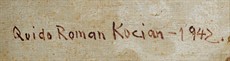 Quido Roman Kocian – 1942.